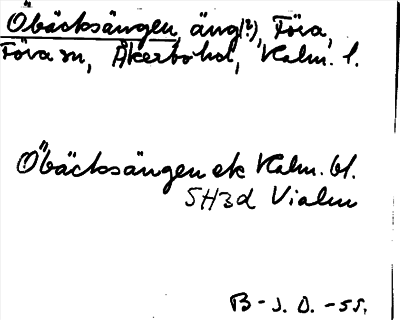 Öbäcksängen, äng(?), Föra,
Föra sn, Åkerbo hd, Kalm. l.
Öbäcksängen ek Kalm. bl.
5H3d Vialm
B-J. D. -55.